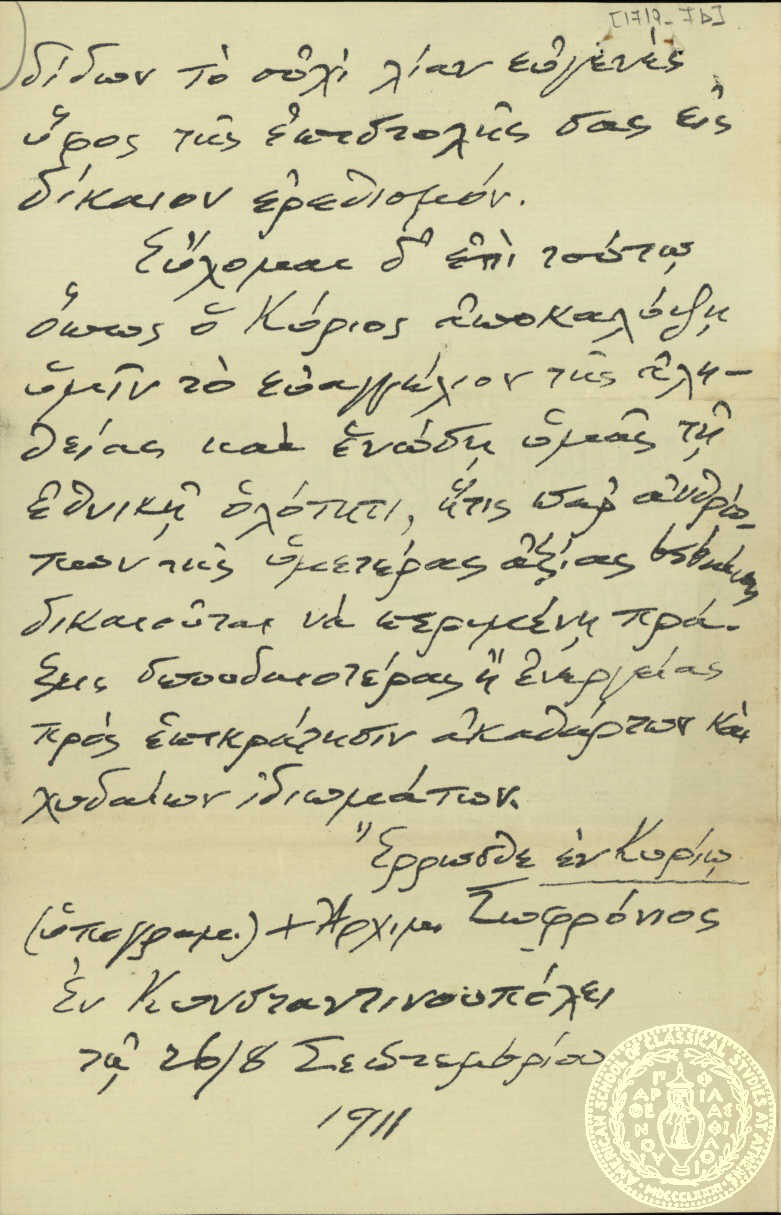 [1719-7b]
δίδων τὸ οὐχὶ λίαν εὐγενές
ὕφος τῆς ἐπιστολῆς σας εἰς
δίκαιον ἐρεθισμόν.
Εὔχομαι δ' ἐπὶ τούτῳ
ὅπως ὁ Κύριος ἀποκαλύψῃ
ὑμῖν τὸ εὐαγγέλιον τῆς ἀλη-
θείας καὶ ἑνώσῃ ὑμᾶς τῇ
ἐθνικῇ ὁλότητι, ἥτις παρ' ἀνθρώ-
πων τῆς ὑμετέρας ἀξίας
δικαιοῦται νὰ περιμένῃ πρά-
ξεις σπουδαιοτέρας ἢ ἐνεργείας
πρὸς ἐπικράτησιν ἀκαθάρτων καὶ
χυδαίων ἰδιωμάτων.
Ἔρρωσθε ἐν Κυρίῳ
(ὑπογραμ.) + Ἀρχιμ. Σωφρόνιος
Ἐν Κωνσταντινουπόλει
τῇ 26/8 Σεπτεμβρίου
1911
AMERICAN SCHOOL OF CLASSICAL STUDIES AT ATHENS
MDCCCLXXXI
ΠΑΡΘΕΝΟΥ ΦΙΛΑΣ ΦΙΛΟΙ